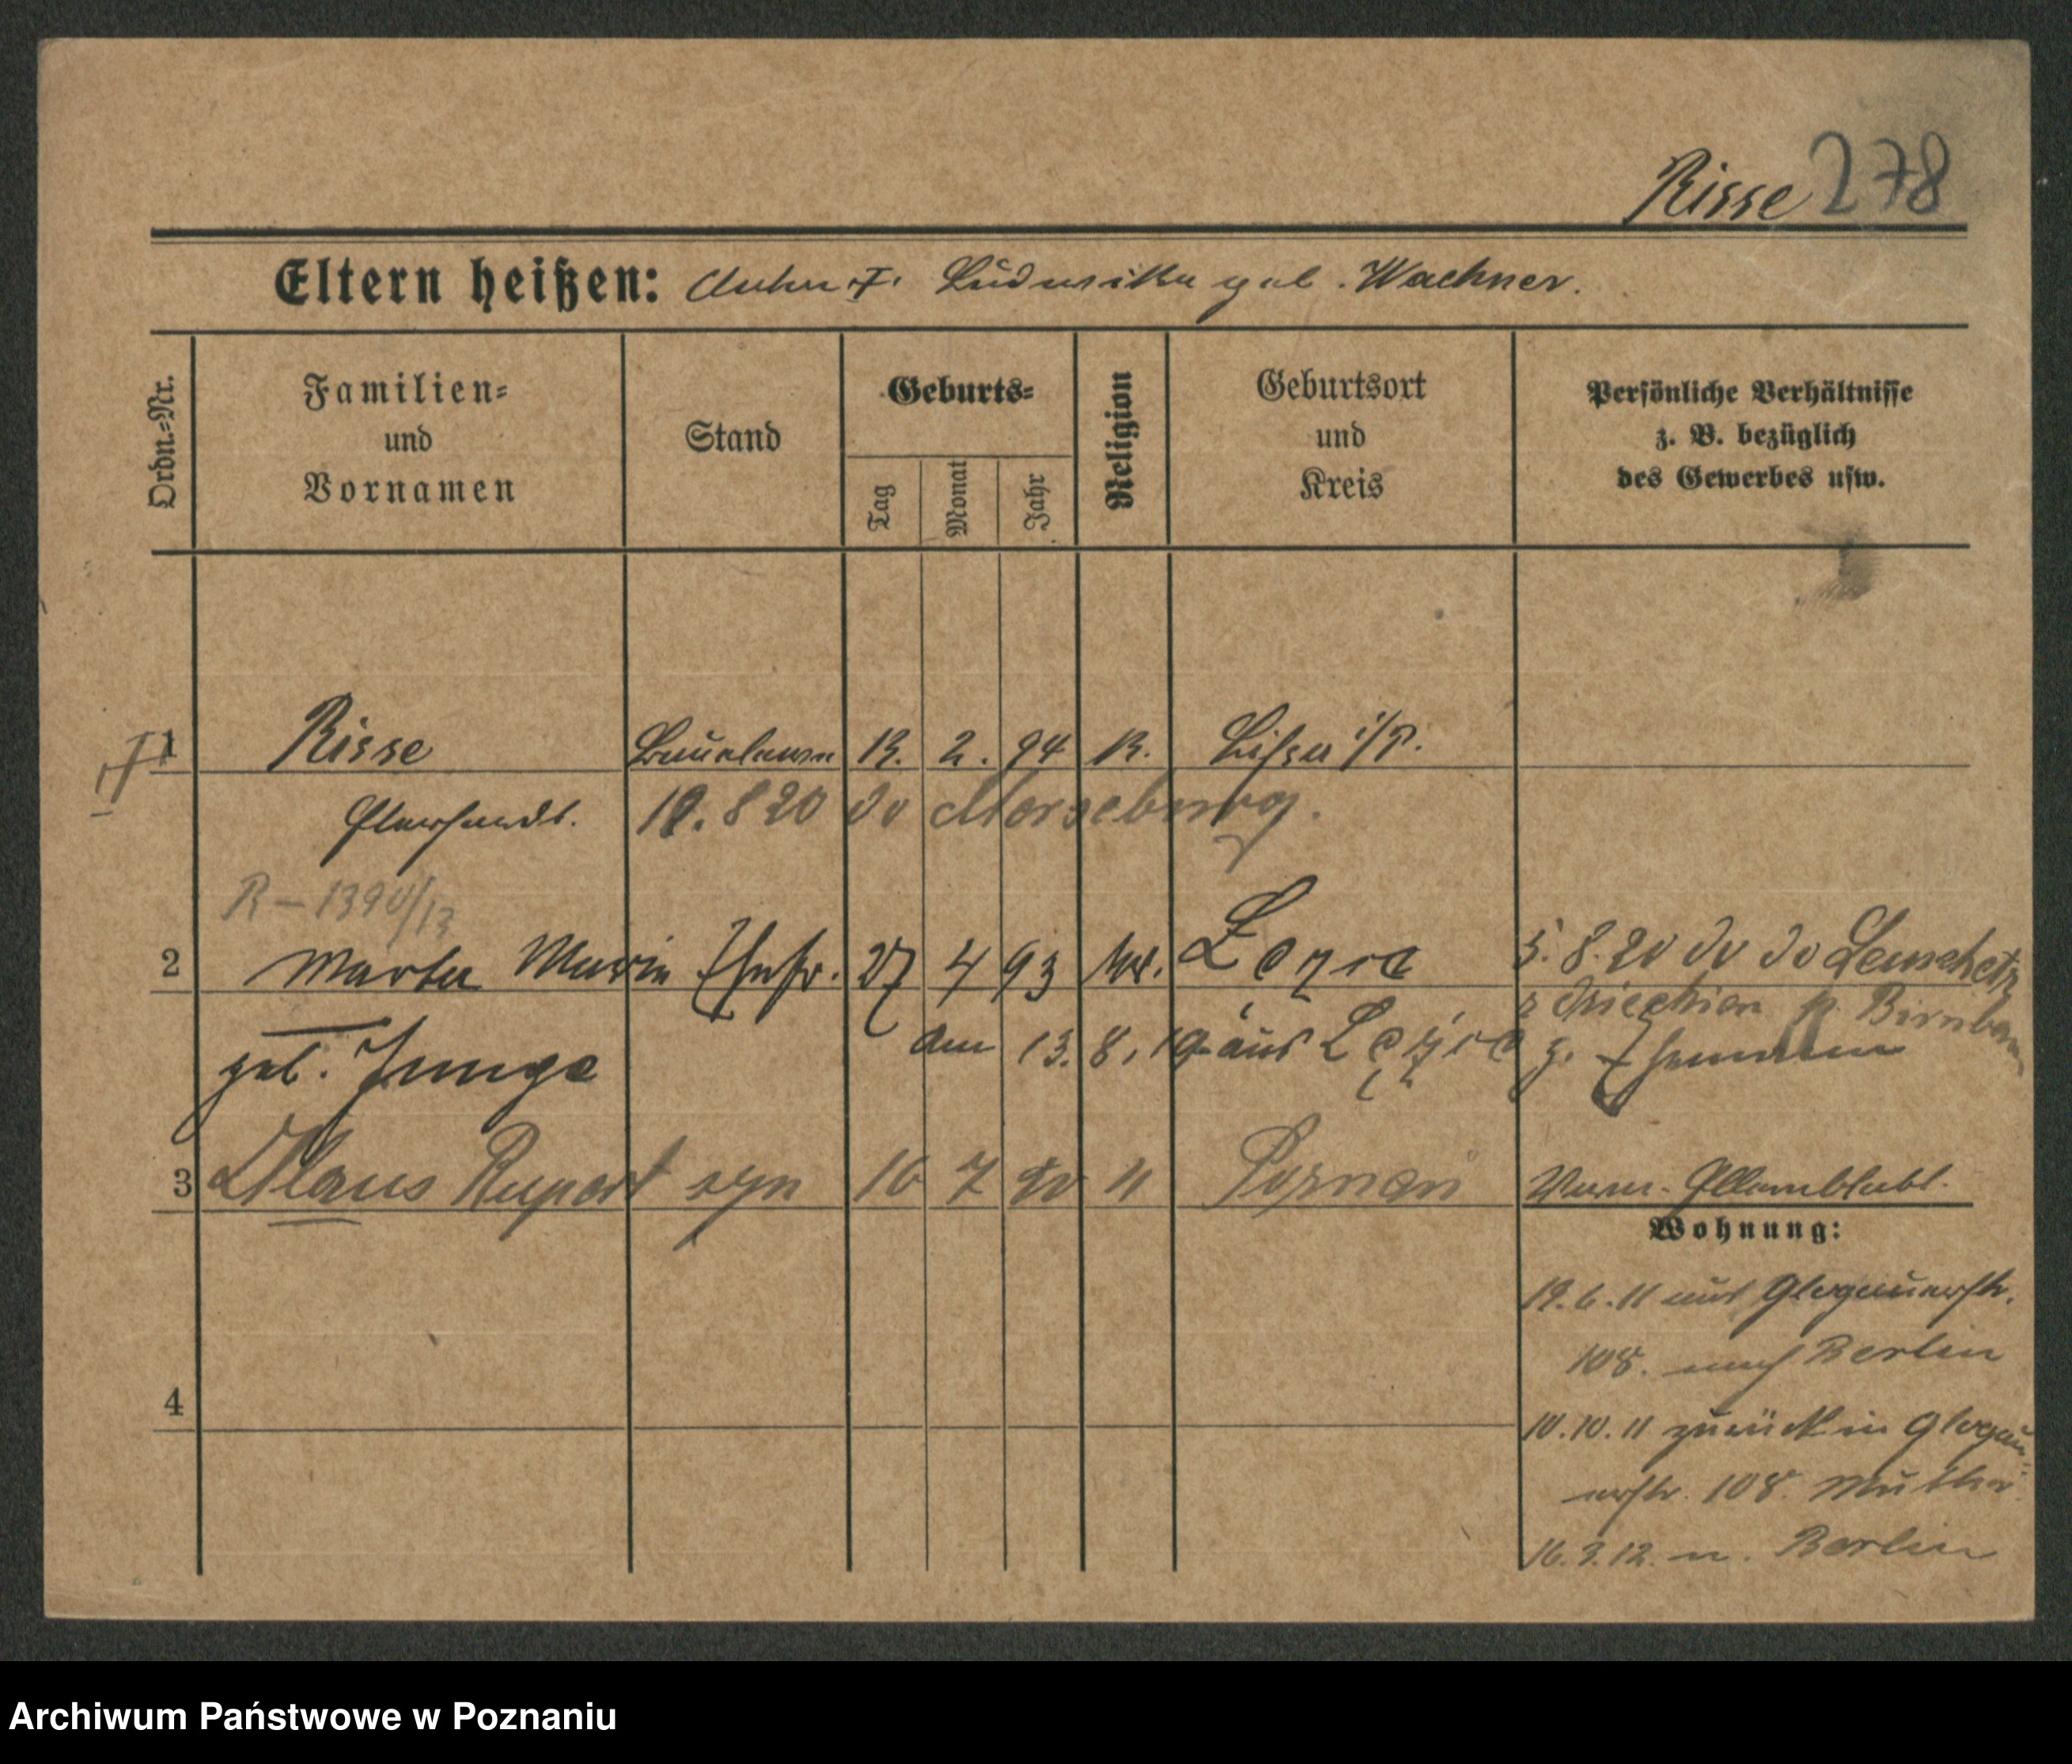 Risse 278
Eltern heißen: Ludwika geb. Wachner.
Ordn.-Nr.
Familien- und Vornamen
Stand
Geburts-
Tag
Monat
Jahr
Religion
Geburtsort und Kreis
Persönliche Verhältnisse z. B. bezüglich des Gewerbes usw.
1 Risse 2. 94 K. Lissa i/P.
19. 8 20 do Merseburg.
R – 1390/13
2 Marta Maria Ehefr. 27 4 93 5. 8. 20 do
geb. Junge am 13. 8. 19 aus z. Ehemann
3 Klaus Rupert syn 16 7 20 " Poznań
Wohnung:
19. 6. 11 aus Glogauerstr.
108. nach Berlin
10. 10. 11 zurück in Glogau-
erstr. 108. Mutter
4
16. 3. 12. n. Berlin
Archiwum Państwowe w Poznaniu